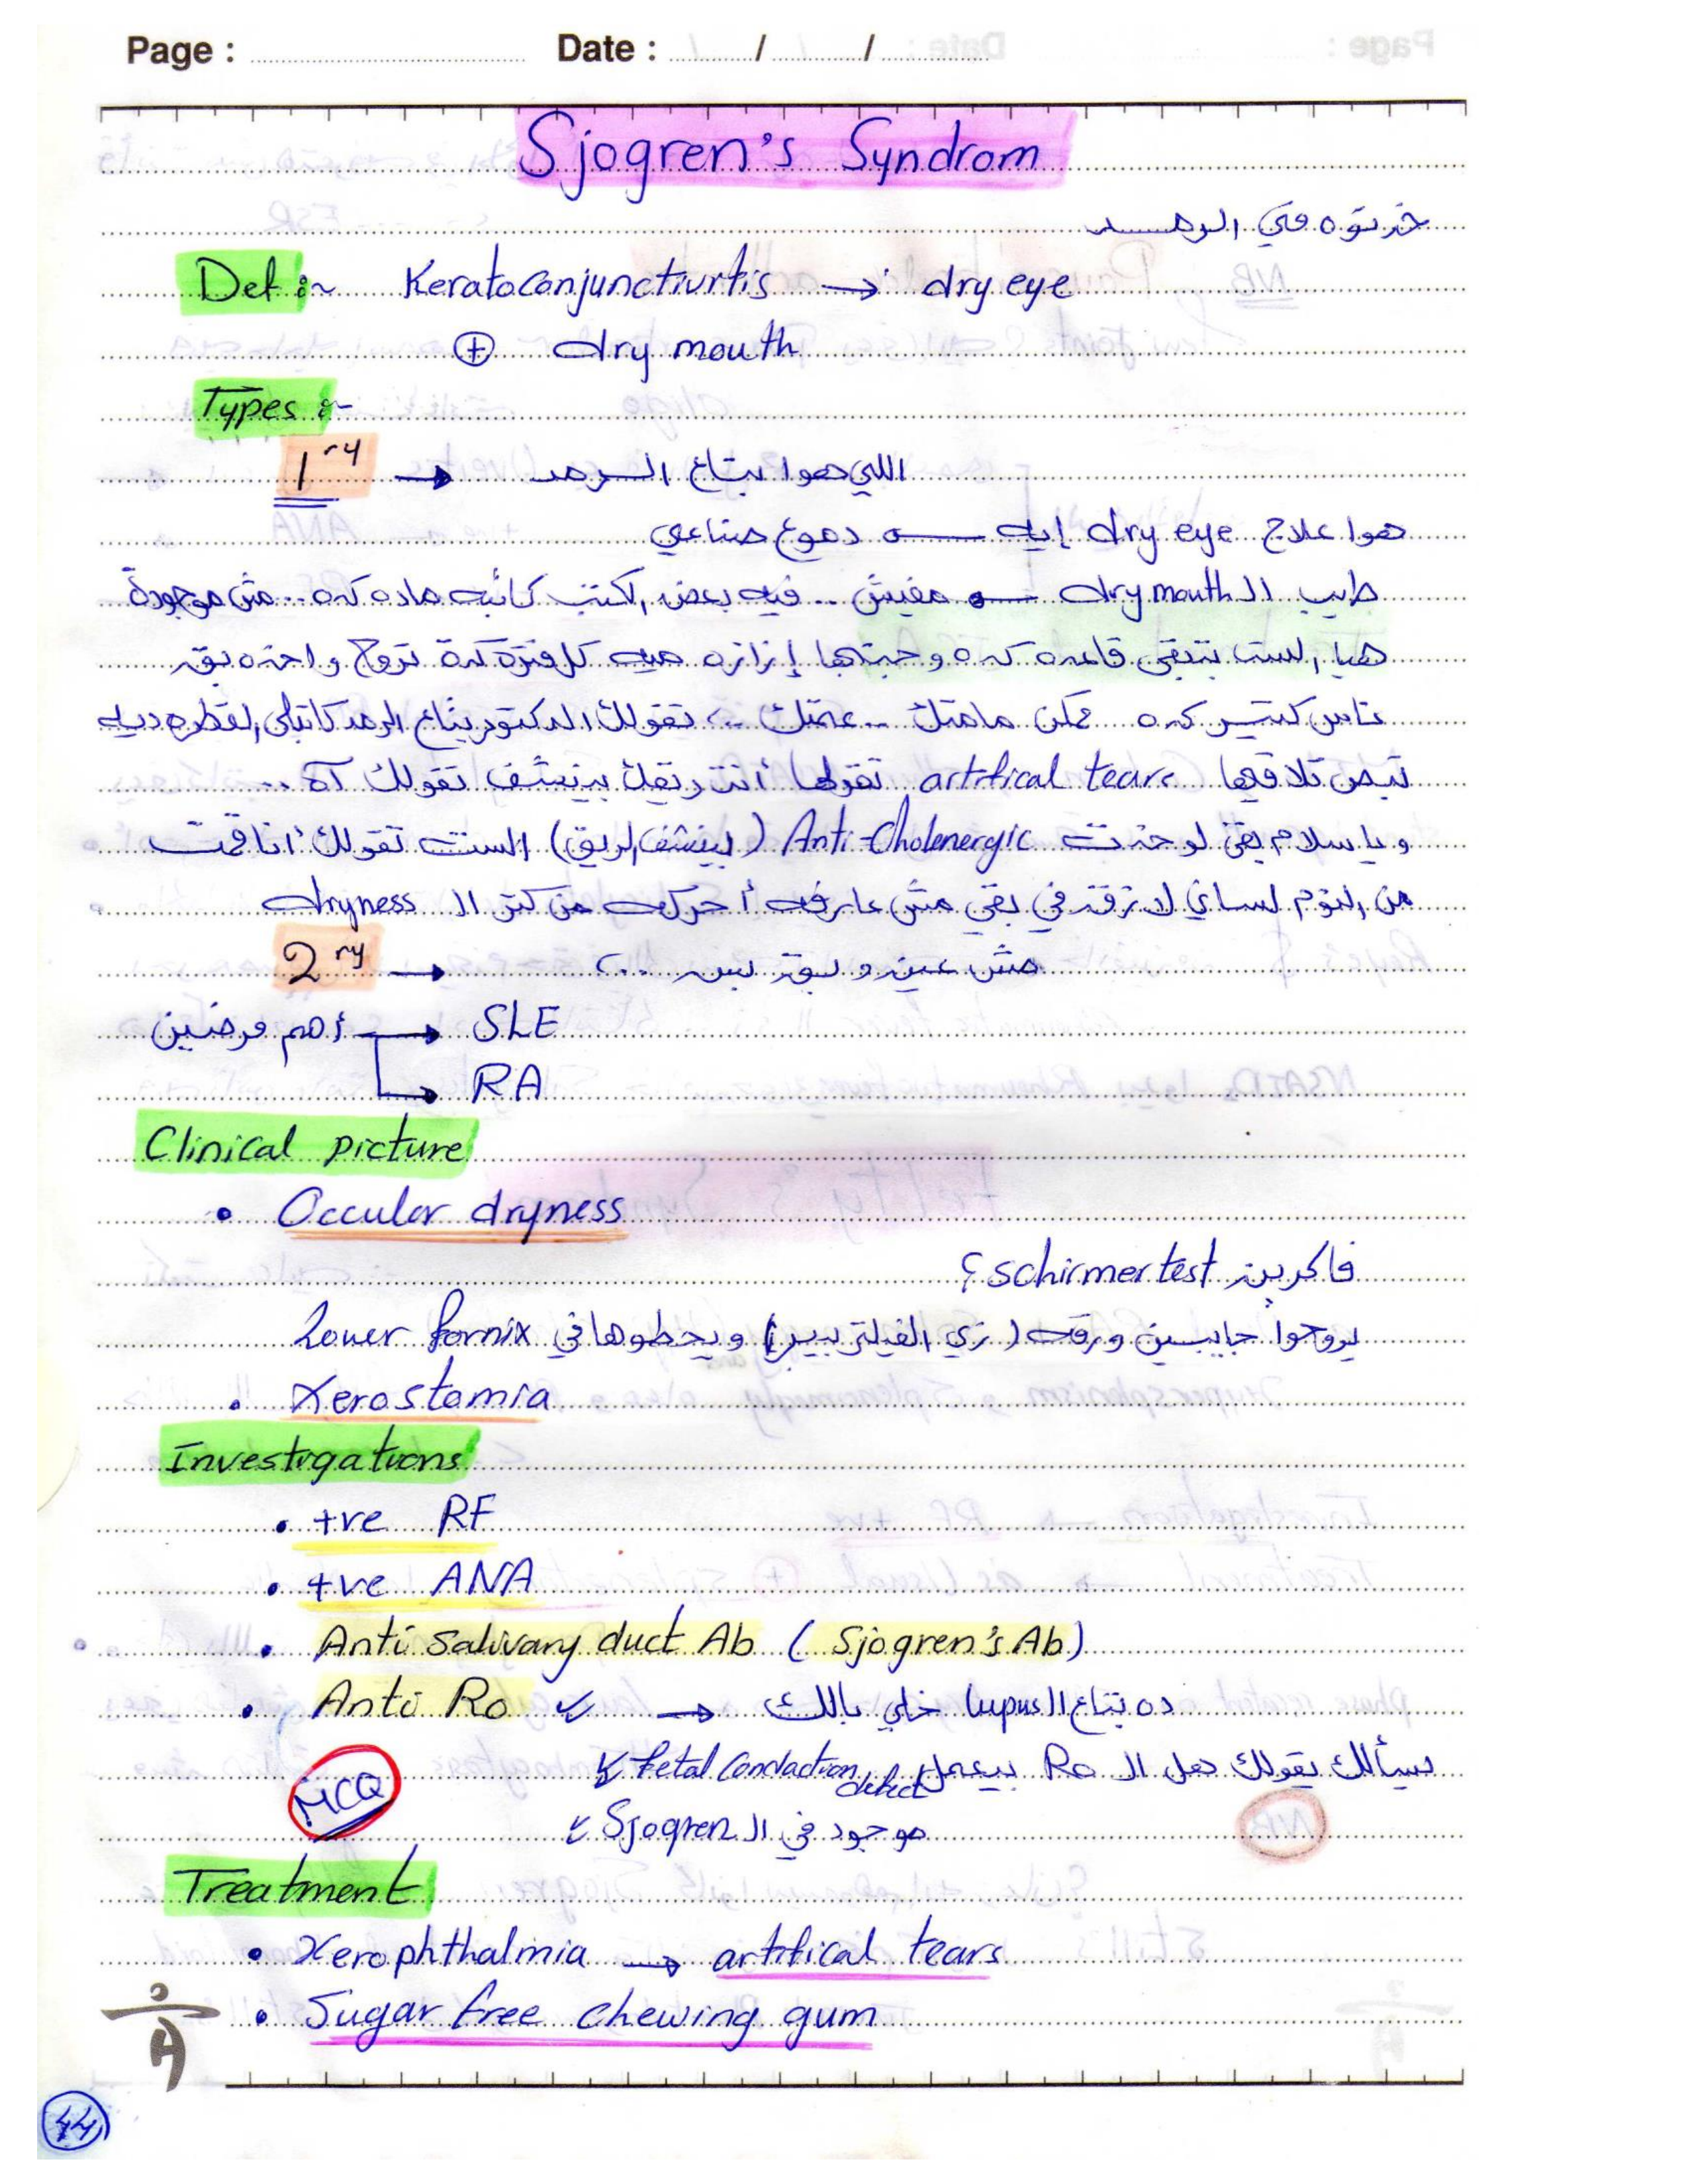 Page : Date : / /
Sjogren's Syndrom
خدتوه في الرمد
Def :~ Keratoconjunctivitis → dry eye
⊕ dry mouth
Types :~
1ry → اللي هوا بتاع الرمد
هوا علاج dry eye إيه → دموع صناعي
طيب ال dry mouth → مفيش .. فيه بعض الكتب كاتبه ماده كده .. مش موجودة
هيا الست بتبقى قاعده كده وجبتها إزازه ميه كل فترة كدة تروح واخده بق
ناس كتير كده ممكن مامتك .. عمتك .. تقولك الدكتور بتاع الرمد كاتبلي القطره ديه
تبص تلاقيها artifical tears تقولها أنت ريقك بينشف تقولك آه ..
ويا سلام بقى لو خدت Anti-Cholenergic (بينشف الريق) الست تقولك أنا قمت
من النوم لساني لازق في بقي مش عارفه أحركه من كتر ال dryness
2ry → مش عين وبق بس ...
أهم مرضين → SLE
→ RA
Clinical picture
• Occular dryness
فاكرين schirmer test ؟
يروحوا جايبين ورقه (زي الفيلتر بيبر) ويحطوها في Lower fornix
• Xerostomia
Investigations
• +ve RF
• +ve ANA
• Anti Salivary duct Ab ( Sjogren's Ab)
• Anti Ro ✓ → ده بتاع ال lupus خلي بالك
يسألك يقولك هل ال Ro بيعمل fetal conduction defect ✓
MCQ
موجود في ال Sjogren ✓
Treatment
• Xerophthalmia → artifical tears
• Sugar free chewing gum
44